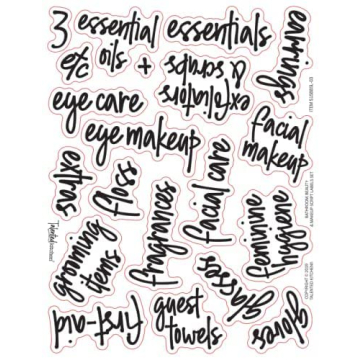 3 essential essentials
etc oils +
exfoliators
& scrubs
earrings
eye care
eye makeup
facial
makeup
extras
floss
fragrances
facial care
feminine
hygiene
grooming
items
glasses
first-aid
guest
towels
gloves
BATHROOM BEAUTY
& MAKEUP SCRIPT LABELS SET
COPYRIGHT © 2020
TALENTED KITCHEN®